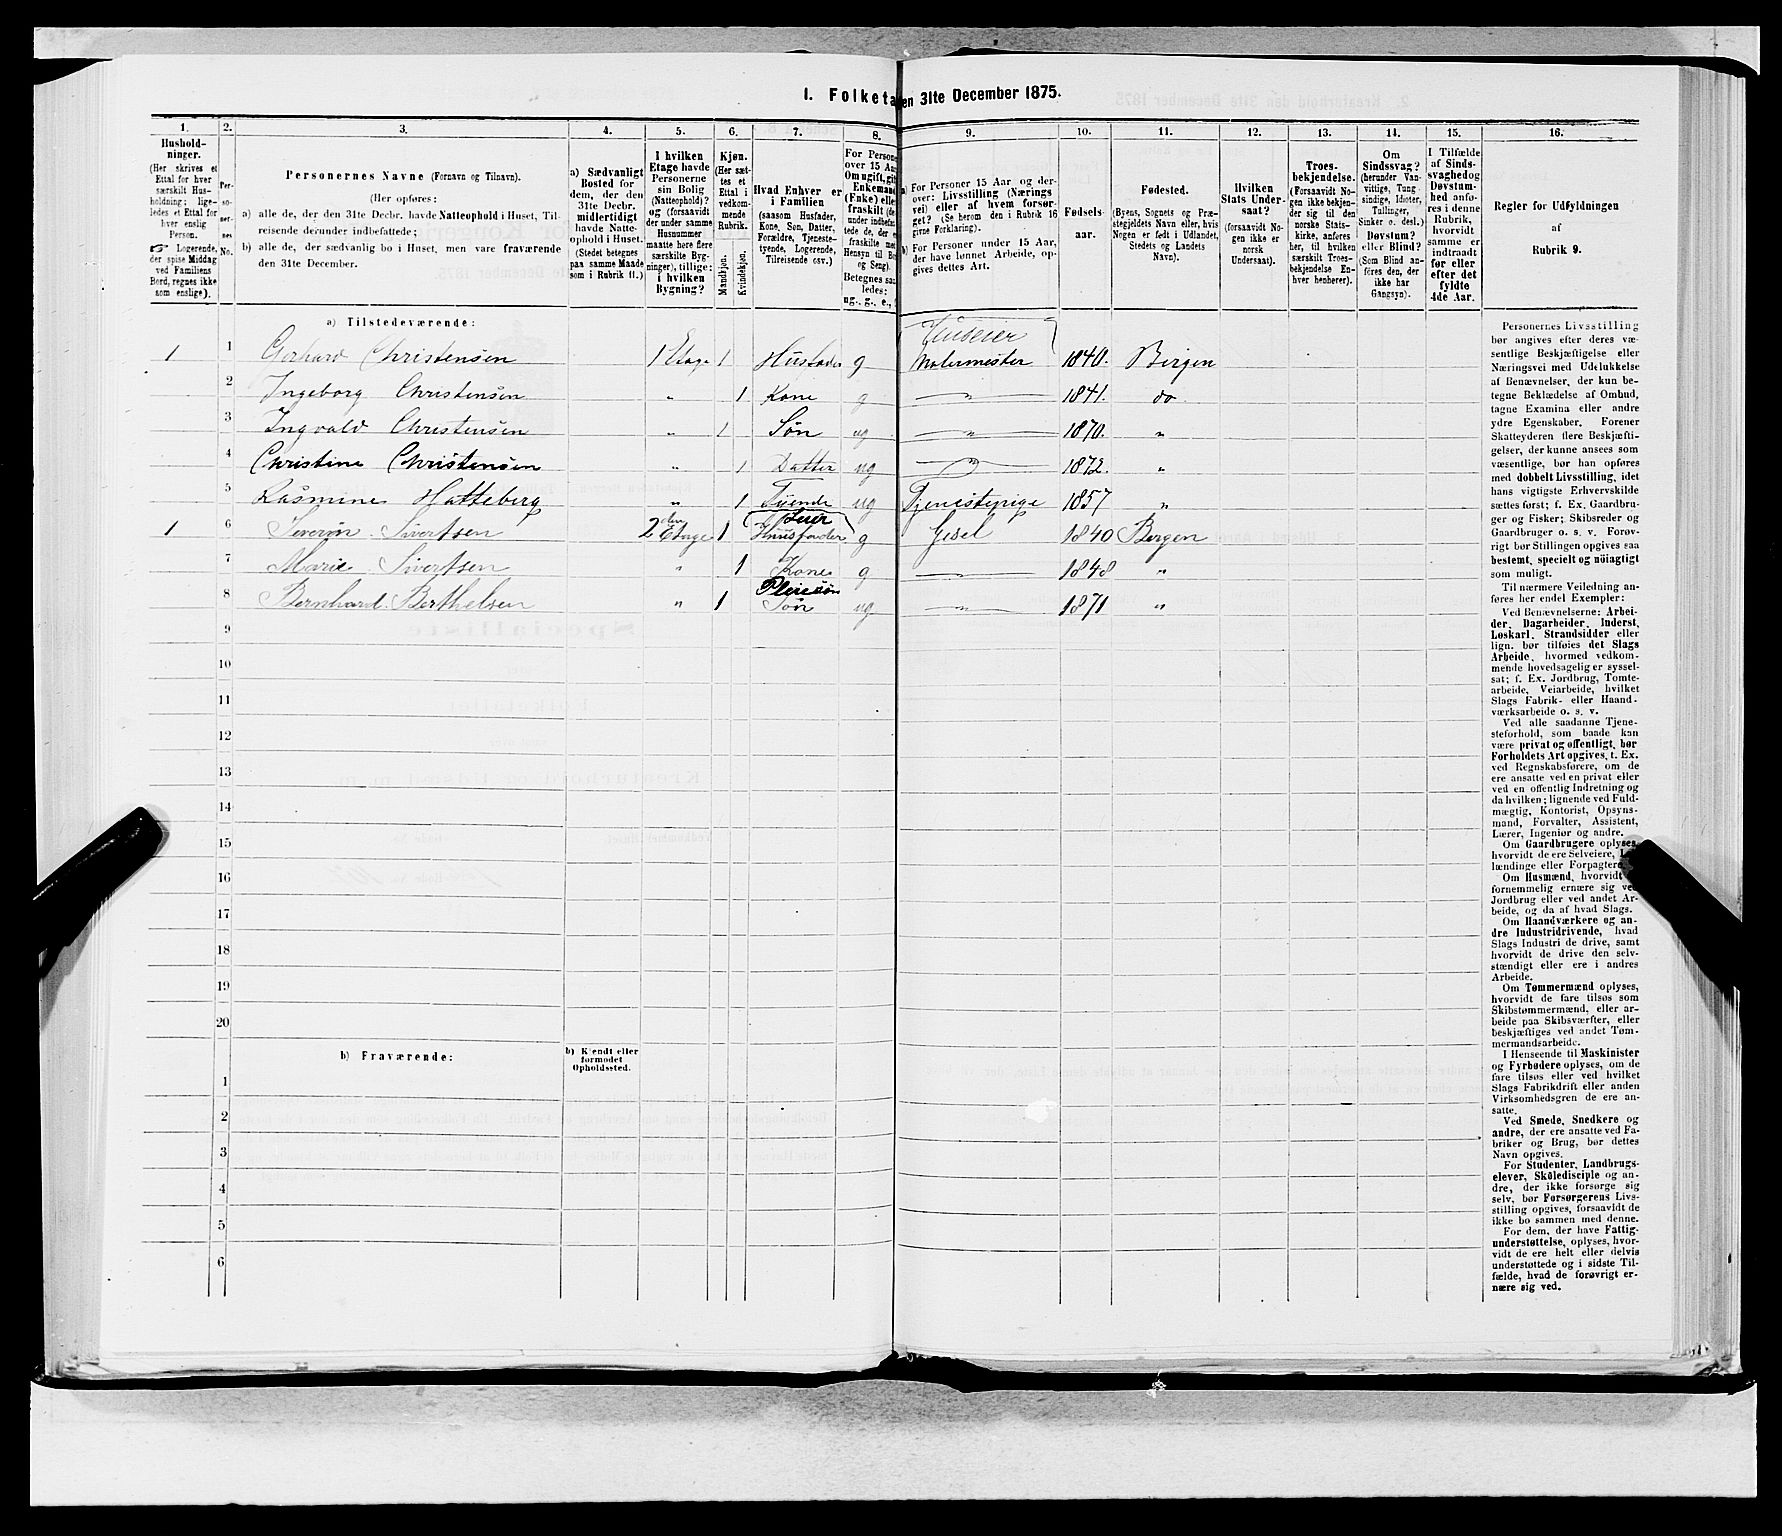 1. Folketa en 31te December 1875.
1. 2. 3. 4. 5. 6. 7. 8. 9. 10. 11. 12. 13. 14. 15. 16.
Hushold-
ninger.
(Her skrives et
Ettal for hver
særskilt Hus-
holdning; lige-
ledes et Ettal for
hver enslig
Person.
☞ Logerende,
der spise Middag
ved Familiens
Bord, regnes ikke
som enslige).
Per-
so-
ner-
nes
No.
Personernes Navne (Fornavn og Tilnavn).
(Her opføres:
a) alle de, der den 31te Decbr. havde Natteophold i Huset, Til-
reisende derunder indbefattede;
b) alle de, der sædvanlig bo i Huset, men vare fraværende
den 31te December.
a) Sædvanligt
Bosted for
dem, der den
31te Decbr.
midlertidigt
havde Natte-
ophold i Huset.
(Stedet betegnes
paa samme Maade
som i Rubrik 11.)
I hvilken
Etage havde
Personerne
sin Bolig
(Natteophold)?
og (forsaavidt
der under samme
Husnummer
maatte høre flere
særskilte Byg-
ninger), tillige:
i hvilken
Bygning?
Kjøn.
(Her sæt-
tes et
Ettal i
vedkom-
mende
Rubrik.
Mandkjøn.
Kvindekjøn.
Hvad Enhver er
i Familien
(saasom Husfader,
Kone, Søn, Datter,
Forældre, Tjeneste-
tyende, Logerende,
Tilreisende osv.)
For Persone
over 15 Aar
Om ugift, gift
Enkemand
(Enke) elle
fraskilt (de
under indbefat-
tede de, der e
fraskilte med
Hensyn til Bo
og Seng).
Betegnes saa
ledes:
ug., g., e.,
a) For Personer 15 Aar og der-
over: Livsstilling (Nærings
vei) eller af hvem forsør-
get? (Se herom den i Rubrik 16
givne Forklaring).
b) For Personer under 15 Aar,
der have lønnet Arbeide, op-
gives dettes Art.
Fødsels-
aar.
Fødested.
(Byens, Sognets og Præ-
stegjeldets Navn eller, hvis
Nogen er født i Udlandet,
Stedets og Landets
Navn).
Hvilken
Stats Under-
saat?
(forsaavidt No-
gen ikke er
norsk
Undersaat).
Troes-
bekjendelse.
(Forsaavidt No-
gen ikke bekjen-
der sig til den
norske Stats-
kirke, anføres
her, til hvilken
særskilt Troes-
bekjendelse En-
hver henhører).
Om
Sindssvag?
(herunder Van-
vittige, Tung-
sindige, Idioter,
Tullinger,
Sinker o. desl.)
Døvstum?
eller Blind?
(Som Blind an-
føres den, der
ikke har
Gangsyn).
I Tilfælde
af Sinds-
svaghed og
Døvstum-
hed anfø-
res i denne
Rubrik,
hvorvidt
samme er
indtraadt
før eller
efter det
fyldte
4de Aar.
Regler for Udfyldningen
af
Rubrik 9.
a) Tilstedeværende:
Huseier
1 1 Gerhard Christensen 1 Etage 1 Husfader g Malermester 1840. Bergen
2 Ingeborg Christensen " 1 Kone g " 1841. do
3 Ingvald Christensen " 1 Søn ug " 1870. "
4 Christine Christensen " 1 Datter ug " 1872. "
5 Rasmine Hatteberg " 1 Tyende ug Tjenestepige 1857 "
Leier
1 6 Severin Sivertsen 2den Etage 1 Huusfader g 1840 Bergen
7 Marie Sivertsen " 1 Kone g 1848 "
Pleiesøn
8 Bernhard Berthelsen " 1 Søn ug " 1871 "
9
10
11
12
13
14
15
16
17
18
19
20
b) Fraværende:
b) Kjendt eller
formodet
Opholdssted.
1
2
3
4
5
6
Personernes Livsstilling
bør angives efter deres væ-
sentlige Beskjæftigelse eller
Næringsvei med Udelukkelse
af Benævnelser, der kun be-
tegne Beklædelse af Ombud,
tagne Examina eller andre
ydre Egenskaber. Forener
Skatteyderen flere Beskjæfti-
gelser, der kunne ansees som
væsentlige, bør han opføres
med dobbelt Livsstilling, idet
hans vigtigste Erhvervskilde
sættes først; f. Ex. Gaardbru-
ger og Fisker; Skibsreder og
Gaardbruger o. s. v. Forøv-
rigt bør Stillingen opgives saa
bestemt, specielt og nöiagtigt
som muligt.
Til nærmere Veiledning an-
føres her endel Exempler:
Ved Benævnelserne: Arbei-
der, Dagarbeider, Inderst,
Løskarl, Strandsidder eller
lign. bør tilføies det Slags
Arbeide, hvormed vedkom-
mende hovedsagelig er syssel-
sat; f. Ex. Jordbrug, Tomte-
arbeide, Veiarbeide, hvilket
Slags Fabrik- eller Haand-
værksarbeide o. s. v.
Ved alle saadanne Tjene-
steforhold, som baade kan
være privat og offentligt, bør
Forholdets Art opgives, t. Ex.
ved Regnskabsførere, om de
ere ansatte ved en privat eller
ved en offentlig Indretning og
da hvilken; lignende ved Fuld-
mægtig, Kontorist, Opsyns-
mand, Forvalter, Assistent,
Lærer, Ingeniør og andre.
Om Gaardbrugere oplyses,
hvorvidt de ere Selveiere,
lændinge eller Forpagtere
Om Husmænd, hvorvidt
fornemmelig ernære sig ved
Jordbrug eller ved andet Ar-
beide, og da af hvad Slags.
Om Haandværkere og an-
dre Industridrivende, hvad
Slags Industri de drive, samt
hvorvidt de drive den selv-
stændigt eller ere i andres
Arbeide.
Om Tømmermænd oplyses,
hvorvidt de fare tilsøs som
Skibstømmermænd, eller ar-
beide paa Skibsværfter, eller
beskjæftiges ved andet Tøm-
mermandsarbeide.
I Henseende til Maskinister
og Fyrbødere oplyses, om de
fare tilsøs eller ved hvilket
Slags Fabrikdrift eller anden
Virksomhedsgren de ere an-
satte.
Ved Smede, Snedkere og
andre, der ere ansatte ved Fa-
briker og Brug, bør dettes
Navn opgives.
For Studenter, Landbrugs-
elever, Skoledisciple og an-
dre, der ikke forsørge sig
selv, bør Forsørgerens Livs-
stilling opgives, forsaavidt de
ikke bo sammen med denne.
For dem, der have Fattig-
understøttelse, oplyses, hvor-
vidt de ere helt eller delvis
understøttede og i sidste Til-
fælde, hvad de forøvrigt er-
nære sig ved.